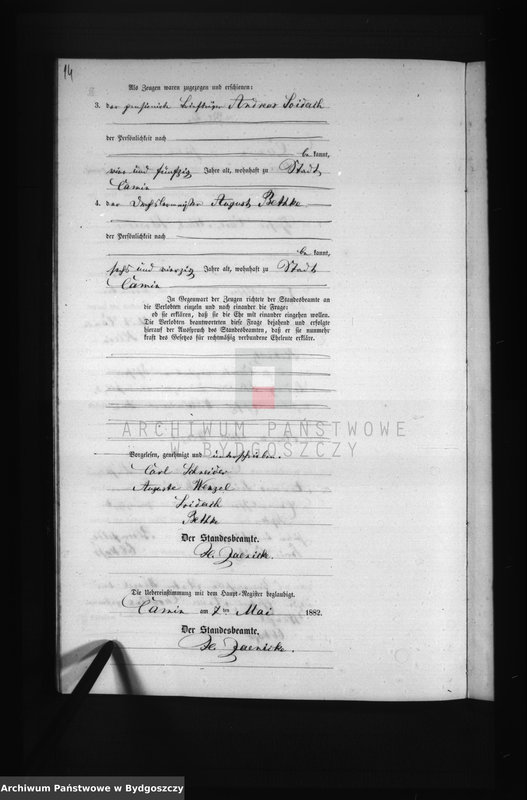 14
Als Zeugen waren zugezogen und erschienen:
3. der pensionirte Andreas
der Persönlichkeit nach
be kannt,
vier und fünfzig Jahre alt, wohnhaft zu Stadt
Camin
4. der Drechslermeister August Bethke
der Persönlichkeit nach
be kannt,
sechs und vierzig Jahre alt, wohnhaft zu Stadt
Camin
In Gegenwart der Zeugen richtete der Standesbeamte an
die Verlobten einzeln und nach einander die Frage:
ob sie erklären, daß sie die Ehe mit einander eingehen wollen.
Die Verlobten beantworteten diese Frage bejahend und erfolgte
hierauf der Ausspruch des Standesbeamten, daß er sie nunmehr
kraft des Gesetzes für rechtmäßig verbundene Eheleute erkläre.
ARCHIWUM PAŃSTWOWE
W BYDGOSZCZY
Vorgelesen, genehmigt und unterschrieben.
Carl Schneider
Auguste Wenzel
Bethke
Der Standesbeamte.
Jaenicke.
Die Uebereinstimmung mit dem Haupt-Register beglaubigt.
Camin am 7ten Mai 1882.
Der Standesbeamte.
Jaenicke.
Archiwum Państwowe w Bydgoszczy